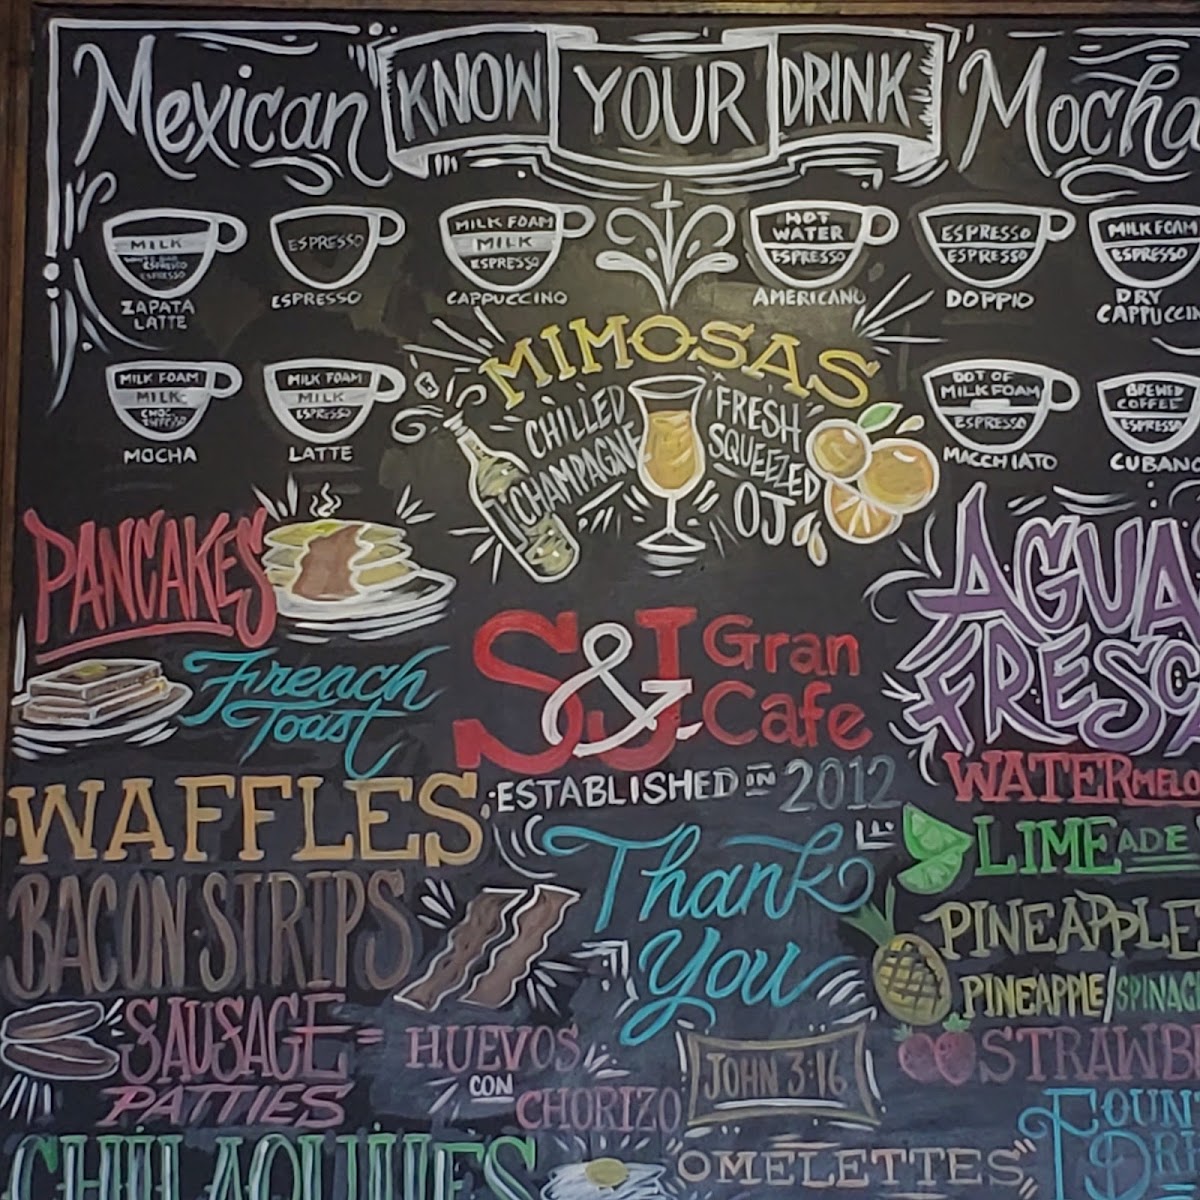 Mexican KNOW YOUR DRINK Mocha
MILK
ESPRESSO
ESPRESSO
ZAPATA
LATTE
ESPRESSO
ESPRESSO
MILK FOAM
MILK
ESPRESSO
CAPPUCCINO
HOT
WATER
ESPRESSO
AMERICANO
ESPRESSO
ESPRESSO
DOPPIO
MILK FOAM
ESPRESSO
DRY
CAPPUCCIN
MILK FOAM
MILK
CHOC.
ESPRESSO
MOCHA
MILK FOAM
MILK
ESPRESSO
LATTE
MIMOSAS
CHILLED
CHAMPAGNE
FRESH
SQUEEZED
OJ
DOT OF
MILK FOAM
ESPRESSO
MACCHIATO
BREWED
COFFEE
ESPRESSO
CUBANO
PANCAKES
French
Toast
S&J Gran
Cafe
ESTABLISHED IN 2012
AGUA
FRESC
WATERMELO
LIMEADE
PINEAPPLE
PINEAPPLE/SPINAC
STRAWB
WAFFLES
BACON STRIPS
Thank
You
SAUSAGE
PATTIES
HUEVOS
CON
CHORIZO
JOHN 3:16
CHILAQUILES
OMELETTES
FOUN
DRI